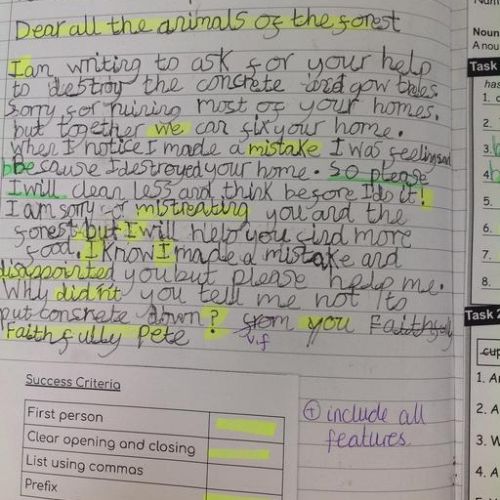 Dear all the animals of the forest
I am writing to ask for your help
to destroy the concrete and gow trees.
Sorry for ruining most of your homes.
but together we can fix your home.
When I notice I made a mistake I was feeling sad
because I destroyed your home. So please
I will clean less and think before I do it!
I am sorry for mistreating you and the
forest but I will help you find more
food. I know I made a mistake and
disappointed you but please help me.
Why didn't you tell me not to
put consrete down? from you Faithfully
v.f
Faithfully Pete
Success Criteria
First person
Clear opening and closing
List using commas
Prefix
+ include all
features
Noun
A nou
Task
has
1.
2.
3.
4.
5.
6.
7.
8.
Task 2
1. A
2. A
3. W
4. A